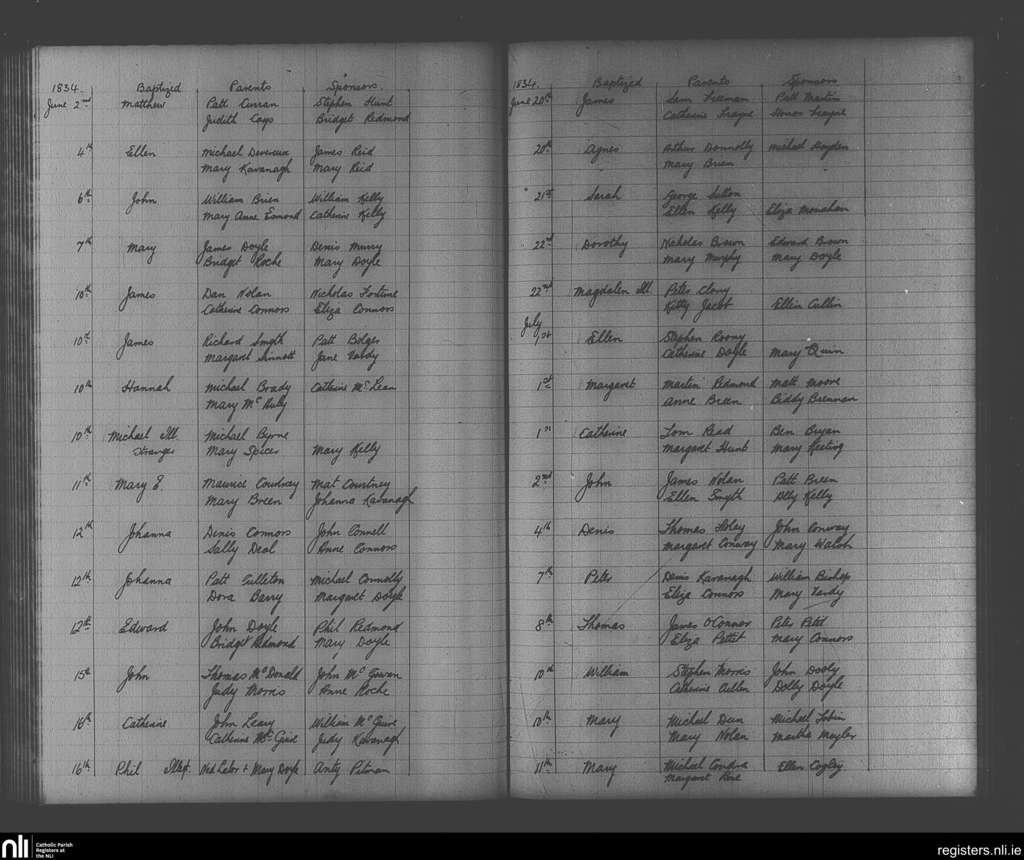 1834. Baptized Parents Sponsors.
June 2nd Matthew Patt Curran Stephen Hunt
Judith Cogs Bridget Redmond
4th Ellen Michael Devereux James Reid
Mary Kavanagh Mary Reid
6th John William Brien William Kelly
Mary Anne Esmond Catherine Kelly
7th Mary James Doyle Denis Murry
Bridget Roche Mary Doyle
10th James Dan Nolan Nicholas Fortune
Catherine Connors Eliza Connors
10th James Richard Smyth Patt Bolger
Margaret Sinnott Jane
10th Hannah Michael Brady Catherine McLean
Mary Mc
10th Michael Ill. Michael Byrne
Stranger Mary Spicer Mary Kelly
11th Mary Maurice Courtney Mat Courtney
Mary Breen Johanna Kavanagh
12th Johanna Denis Connors John Connell
Sally Deal Anne Connors
12th Johanna Patt Culleton Michael Connolly
Dora Barry Margaret Doyle
12th Edward John Doyle Phil Redmond
Bridget Redmond Mary Doyle
15th John Thomas McDonald John McGowan
Judy Morris Anne Roche
16th Catherine John Leary William McGuire
Catherine McGuire Judy Kavanagh
16th Phil Illeg. Ned Lalor + Mary Doyle Anty Pitman
1834. Baptized Parents Sponsors
June 20th James Sam Freeman Patt Martin
Catherine Trayne Honor Trayne
20th Agnes Arthur Donnolly Michael Doyden
Mary Brien
21st Sarah George Sutton
Ellen Kelly Eliza Monahan
22nd Dorothy Nicholas Brown Edward Brown
Mary Murphy Mary Doyle
22nd Magdalen Ill. Peter Clony
Kitty Jacob Ellen Cullen
July
1st Ellen Stephen Roony
Catherine Doyle Mary Quin
1st Margaret Martin Redmond Matt Moore
Anne Breen Biddy Brennan
1st Catherine Tom Read Ben Bryan
Margaret Hunt Mary Keating
2nd John James Nolan Patt Breen
Ellen Smyth Ally Kelly
4th Denis Thomas Foley John Conway
Margaret Conway Mary Walsh
7th Peter Denis Kavanagh William Bishop
Eliza Connors Mary
8th Thomas James O'Connor Peter
Eliza Pettit Mary Connors
10th William Stephen Morris John Dooly
Catherine Cullen Dolly Doyle
10th Mary Michael Dun Michael Tobin
Mary Nolan Martha Meyler
11th Mary Michael Condra Ellen Cogley
Margaret
nli
Catholic Parish
Registers at
the NLI
registers.nli.ie